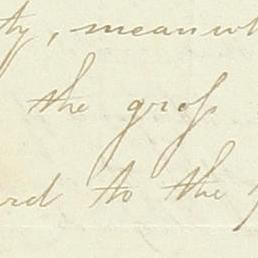 ty, meanwh
the gross
rd to the